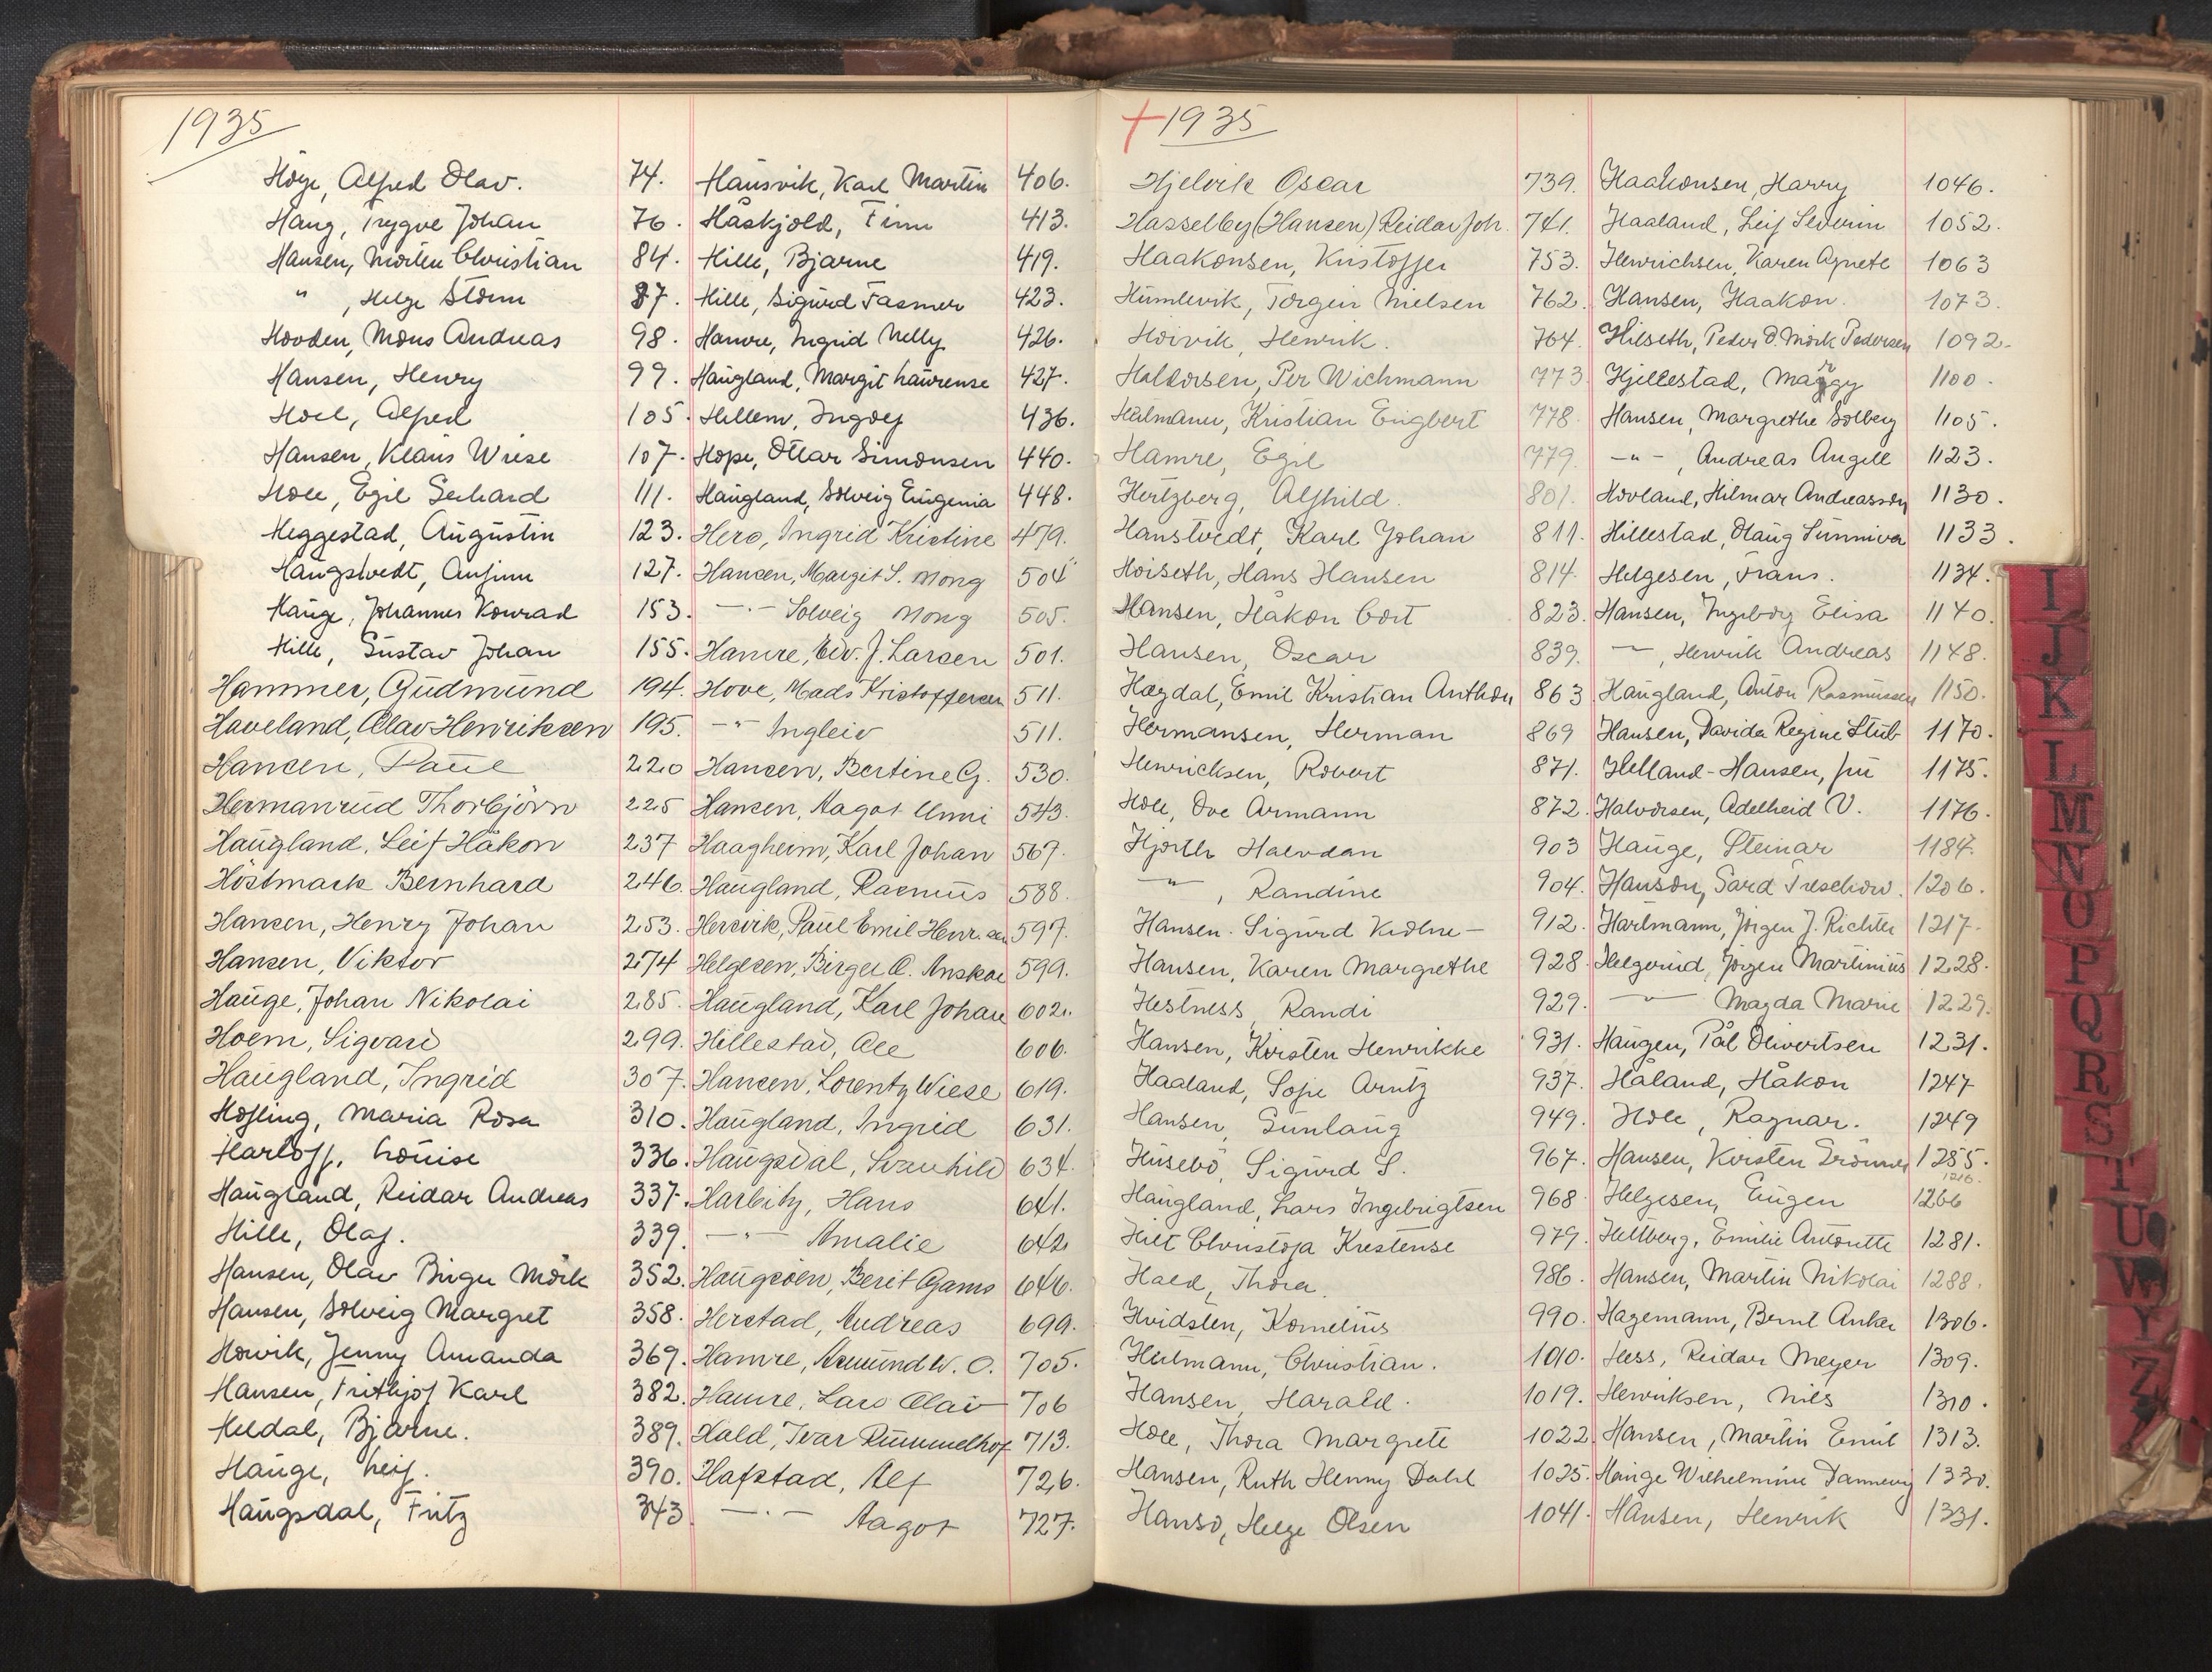 1935
Høye, Alfred Olav. 74.
Haug, Trygve Johan 76.
Hansen, Morten Christian 84.
" , Helge Storm 87.
Hovden, Mons Andreas 98.
Hansen, Henry 99.
Hoel, Alfred 105.
Hansen, Klaus Wiese 107.
Hole, Egil Gerhard 111.
Heggestad, Augustin 123.
Haugstvedt, Anfinn 127.
Hauge, Johannes Konrad 153.
Hille, Gustav Johan 155.
Hammer, Gudmund 194.
Haveland, Olav Henriksen 195.
Hansen, Paul 220
Hermanrud Thorbjörn 225
Haugland, Leif Håkon 237
Höstmark Bernhard 246.
Hansen, Henry Johan 253.
Hansen, Viktor 274
Hauge, Johan Nikolai 285.
Hoem, Sigvard 299.
Haugland, Ingrid 307.
Höfling, Maria Rosa 310.
Harloff, Louise 336.
Haugland, Reidar Andreas 337.
Hille, Olaf. 339.
Hansen, Olav Birger Mörk 352.
Hansen, Solveig Margret 358.
Howik, Jenny Amanda 369.
Hansen, Frithjof Karl 382.
Heldal, Bjarne. 389.
Hauge, Leif. 390.
Haugsdal, Fritz 343
Hausvik, Karl Martin 406.
Håskjold, Finn 413.
Hille, Bjarne 419.
Hille, Sigurd Fasmer 423.
Hamre, Ingrid Nelly 426.
Haugland, Margit Laurense 427.
Hellem, Ingolf 436.
Hope, Ottar Simonsen 440.
Haugland, Solveig Eugenia 448.
Hero, Ingrid Kristine 479.
Hansen, Margit S. Mong 504
—·— Solveig Mong 505.
Hamre, Edv. J. Larsen 501.
Hove, Mads Kristoffersen 511.
—"— Ingleiv 511.
Hansen, Bertine G. 530.
Hansen, Aagot Unni 543.
Haagheim, Karl Johan 567.
Haugland, Rasmus 588.
Hersvik, Paul Emil Henr.sen 597.
Helgesen, Birger O. Anskar 599.
Haugland, Karl Johan 602.
Hillestad, Ole 606.
Hansen, Lorentz Wiese 619.
Haugland, Ingrid 631.
Haugsdal, Svanhild 634.
Harbitz, Hans 641.
—"— Amalie 642
Haugsöen, Berit Gjams 646.
Herstad, Andreas 699.
Hamre, Amund W. O. 705.
Hamre, Lars Olai 706
Hald, Ivar Rummelhof 713.
Hafstad, Alf 726.
—·— Aagot 727.
+ 1935
Hjelvik Oscar 739.
Hasselby (Hansen) Reidar Joh. 741.
Haakonsen, Kristoffer 753.
Humlevik, Torgeir Nielsen 762.
Hoivik, Henrik. 764.
Haldorsen, Per Wichmann 773
Heilmann, Kristian Engbert 778.
Hamre, Egil 779.
Hertzberg, Alfhild. 801.
Hanstvedt, Karl Johan 811.
Hoiseth, Hans Hansen 814.
Hansen, Håkon Cort 823.
Hansen, Oscar 839.
Hagdal, Emil Kristian Anthon 863
Hermansen, Herman 869
Henricksen, Robert 871.
Hole, Ove Armann 872.
Hjorth Halvdan 903
—"— , Randine 904.
Hansen. Sigurd Kiølne — 912.
Hansen, Karen Margrethe 928.
Hestness Randi 929.
Hansen, Kirsten Henrikke 931.
Haaland, Sofie Arntz 937.
Hansen, Gunlaug 949.
Husebö, Sigurd S. 967.
Haugland, Lars Ingebrigtsen 968
Hiet Christofa Krestense 979.
Hald, Thora. 986.
Hvidsten, Kornelius 990.
Heilmann, Christian. 1010.
Hansen, Harald. 1019.
Hole, Thora Margrete 1022.
Hansen, Ruth Henny Dahl 1025.
Hanso, Helge Olsen 1041.
Haakonsen, Harry 1046.
Haaland, Leif Severin 1052.
Henrichsen, Karen Agnete 1063
Hansen, Haakon. 1073.
Hilseth, Peder O. Mork Pedersen 1092.
Hjellestad, Maggy 1100.
Hansen, Margrethe Solberg 1105.
—"— , Andreas Angell 1123.
Hovland, Hilmar Andreassen 1130.
Hillestad, Olaug Sunniva 1133.
Helgesen, Frans. 1134.
Hansen, Ingeborg Elisa 1140.
— , Henrik Andreas 1148.
Haugland, Anton Rasmussen 1150.
Hansen, Davida Regine Stub 1170.
Helland-Hansen, 1175.
Halvorsen, Adelheid V. 1176.
Hauge, Steinar 1184.
Hanson, Sard Treschow. 1206.
Hartmann, Jörgen J. Richter 1217.
Helgerud, Jörgen Martinius 1228.
—"— Magda Marie 1229.
Haugen, Pål Olivertsen 1231.
Håland, Håkon 1247
Hole, Ragnar. 1249
Hansen, Kirsten 1255.
Helgesen, Eugen 1266
Heltberg, Emilie Antonette 1281.
Hansen, Martin Nikolai 1288.
Hagemann, Bernt Anker 1306.
Hess, Reidar Meyer 1309.
Henriksen, Nils 1310.
Hansen, Martin Emil 1313.
Hauge Wilhelmine Dannevig 1330.
Hansen, Henrik 1331.
I
J
K
L
M
N
O
P
Q
R
S
T
U
W
Y
Z